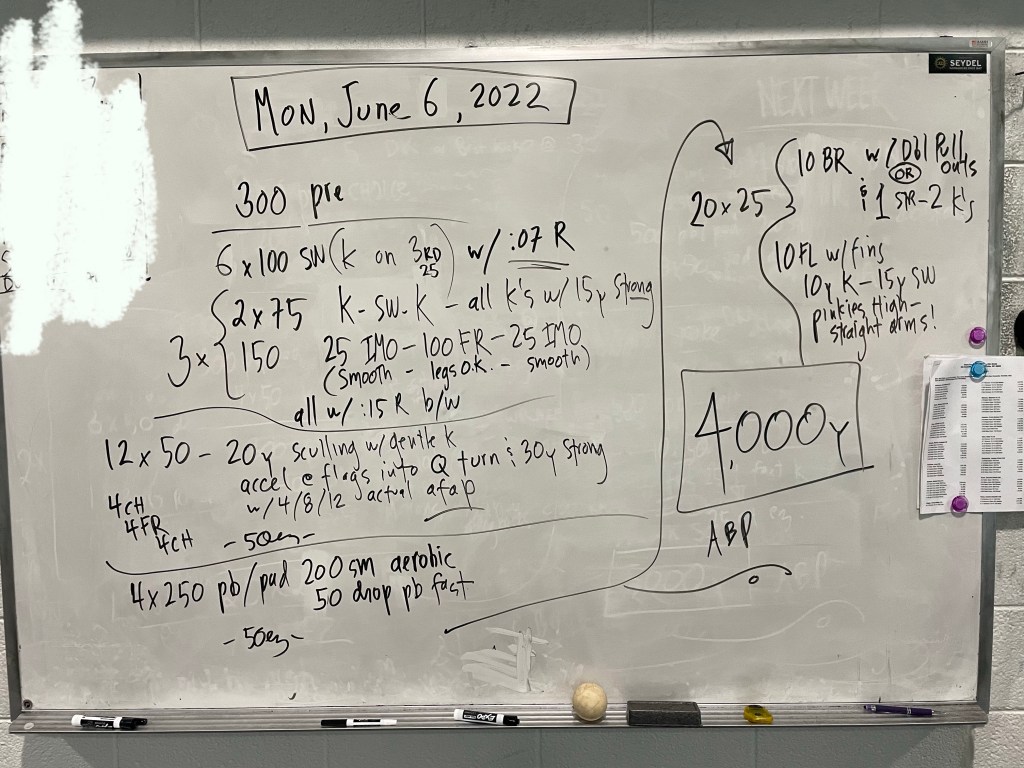 SEYDEL
MON, June 6, 2022
300 pre
6 x 100 SW (k on 3RD 25) w/ :07 R
3 x { 2 x 75 K - SW - K - all K's w/ 15y strong
150 25 IMO - 100 FR - 25 IMO
(smooth - legs o.k. - smooth)
all w/ :15 R b/w
12 x 50 - 20y sculling w/ gentle k
accel @ flags into Q turn & 30y strong
w/ 4/8/12 actual afap
4 CH
4 FR
4 CH
- 50ez -
4 x 250 pb/pad 200 sm aerobic
50 drop pb fast
- 50ez -
NEXT WEEK
20 x 25 { 10 BR w/ Dbl Pull outs
OR
& 1 STR - 2 K's
10 FL w/ fins
10y K - 15y SW
pinkies High -
straight arms!
4,000y
ABP
EXPO